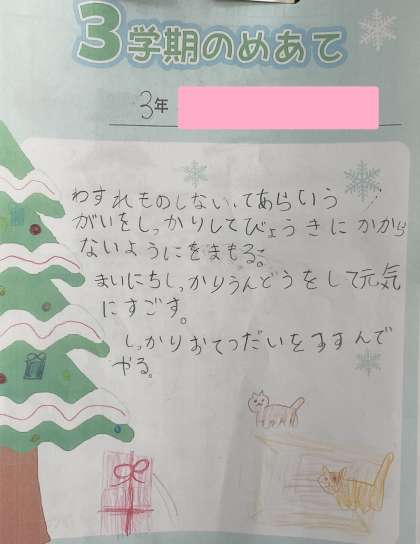 3学期のめあて
3年
わすれものしない、てあらいう
がいをしっかりしてびょうきにかから
ないようにをまもる。
まいにちしっかりうんどうをして元気
にすごす。
しっかりおてつだいをすすんで
やる。